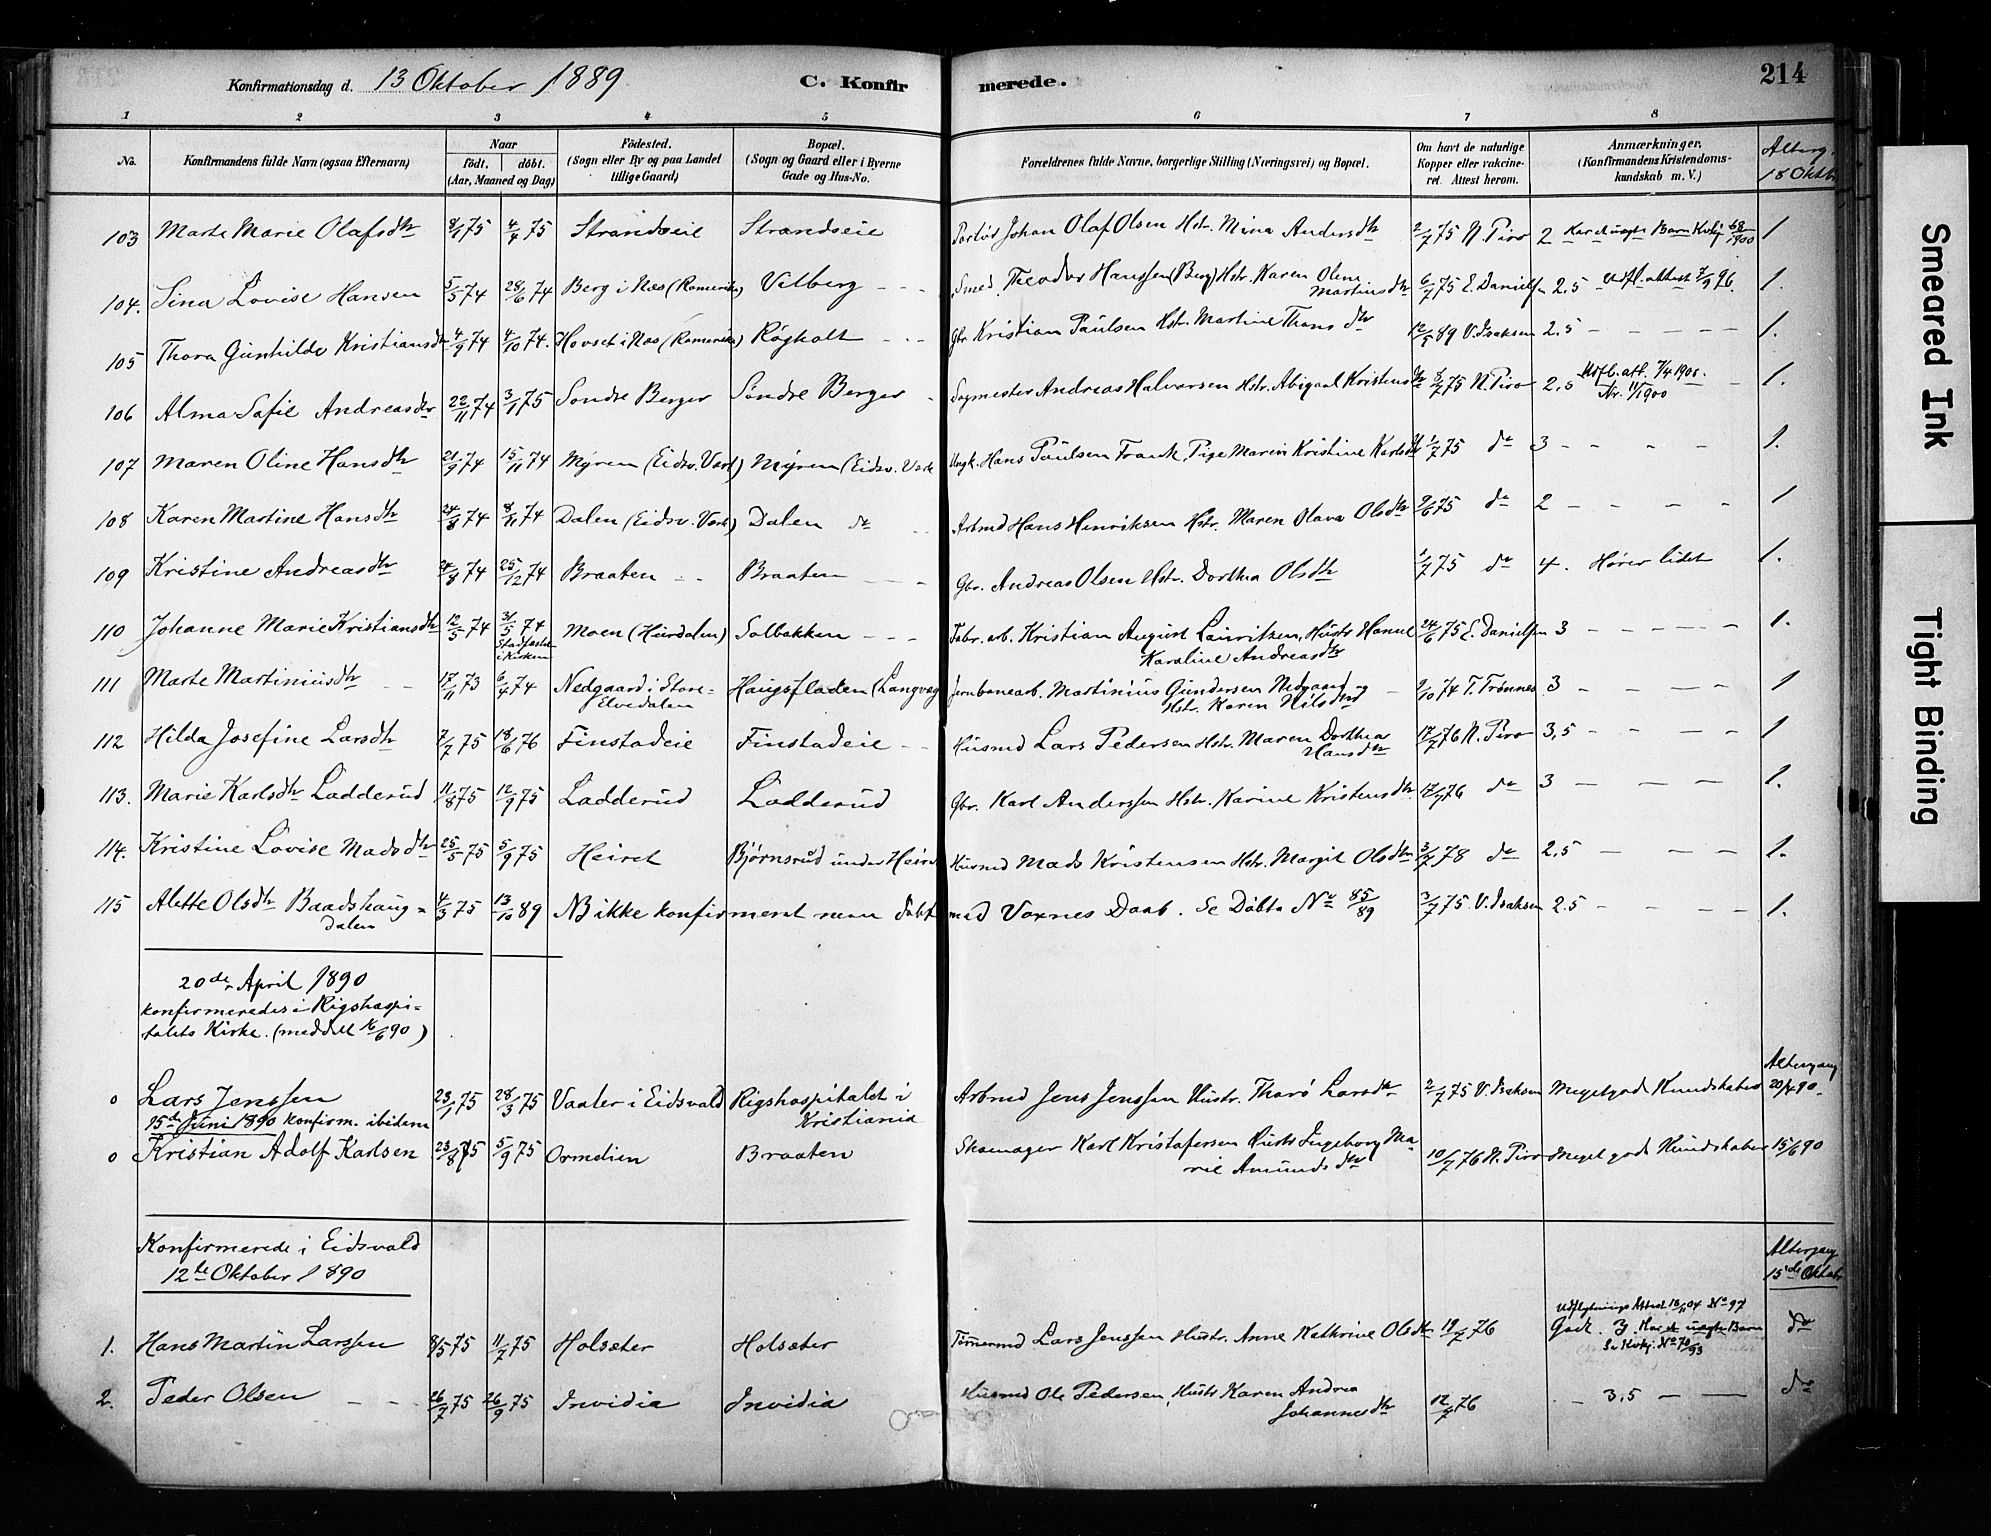 Konfirmationsdag d. 13 Oktober 1889 C. Konfirmerede. 214
1 2 3 4 5 6 7 8
No. Konfirmandens fulde Navn (ogsaa Efternavn) Naar födt. döbt. (Aar, Maaned og Dag) Födested. (Sogn eller By og paa Landet tillige Gaard) Bopæl. (Sogn og Gaard eller i Byerne Gade og Hus-No. Forældrenes fulde Navne, borgerlige Stilling (Næringsvei) og Bopæl. Om havt de naturlige Kopper eller vakcineret. Attest herom. Anmærkninger, (Konfirmandens Kristendomskundskab m. V.) Alterg. 18 Oktb.
103 Marte Marie Olafsdtr 8/1 75 4/4 75 Strandseie Strandseie Johan Olaf Olsen Hstr. Mina Andersdtr 2/7 75 N. Piro 2 Har et uægte Barn Kirkbg 68/1900 1
104. Lina Lovise Hansen 5/5 74 28/6 74 Berg i Næs (Romerike) Vilberg - - - Smed Theodor Hanssen (Berg) Hstr. Karen Oline Martinusdtr 6/7 75 E. Danielsen 2.5 Udfl. attest 7/9 96. 1.
105 Thora Gunhilde Kristiansdtr 4/9 74 4/10 74. Hovset i Næs (Romerike) Røgholt - - - Gbr. Kristian Paulsen Hstr. Martine Thorsdtr 12/5 89 V. Isaksen 2.5 - - - - - 1.
106 Alma Sofie Andreasdtr 22/11 74 3/1 75 Søndre Berger Søndre Berger - Sagmester Andreas Halvorsen Hstr. Abigael Kristensdtr 8/7 75 N. Piro 2.5 Udfl. att. 7/4 1900. Nr. 11/1900 - 1.
107 Maren Oline Hansdtr 21/9 74 15/11 74 Myren (Eidsv. Værk) Myren (Eidsv. Værk Ungk. Hans Paulsen Frank, Pige Maren Kristine Karlsdtr 1/7 75 do 3 - - - - 1.
108 Karen Martine Hansdtr 24/8 74 8/11 74 Dalen (Eidsv. Værk) Dalen do - - Arbmd Hans Henriksen Hstr. Maren Olava Olsdtr 9/6 75 do 2 - - - - 1
109 Kristine Andreasdtr 24/8 74 25/12 74 Braaten - - Braaten - - - Gbr. Andreas Olsen Hstr. Dorthea Olsdtr 1/7 75 do 4. Hører lidet 1.
110 Johanne Marie Kristiansdtr 12/5 74 31/5 74 Stadfæstet i Kirken Moen (Hurdalen) Solbakken - - - Fabr. arb. Kristian August Lauritzen, Hustr Hanne Karoline Andreasdtr 24/6 75 E. Danielsen 3 - - - - - 1.
111 Marte Martiniusdtr - - 17/11 73 6/4 74 Nedgaard i Store-Elvedalen Haugsfladen (Langvæg Jernbanearb. Martinius Gundersen Nedgaard og Hstr. Karen Nilsdtr 9/10 74 T. Trønnes 3 - - - - 1
112 Hilda Josefine Larsdtr 7/7 75 18/6 76 Finstadeie Finstadeie - - Husmd Lars Pedersen Hstr. Maren Dorthea Hansdtr 17/7 76 N. Piro 3,5 - - - - 1
113. Marie Karlsdtr Ladderud 11/8 75 12/9 75 Ladderud Ladderud Gbr. Karl Anderssen Hstr. Karine Kristensdtr. 17/7 76 do 3 - - - - 1.
114. Kristine Lovise Madsdtr 25/5 75 5/9 75 Heiret Bjørnsrud under Heiret Husmd Mads Kristensen Hstr. Margit Olsdtr 3/7 78 do 2,5 - - - - 1.
115 Alette Olsdtr Baadshaugdalen 4/3 75 13/10 89 NB ikke konfirmeret men døbt med Voxnes Daab. Se Döbte No 85/89 3/7 75 V. Isaksen 2.5 - - - - 1.
20de April 1890
konfirmeredes i Rigshospi-
talets Kirke. (meddelt 16/6 90)
Altergang
o Lars Jenssen 23/1 75 28/3 75 Vaaler i Eidsvold Rigshospitalet i Kristiania Arbmd Jens Jenssen Hustr. Thora Larsdtr 2/7 75 V. Isaksen Meget gode Kundskaber 20/4 90.
15de Juni 1890 konfirm. ibidem
o Kristian Adolf Karlsen 23/8 75 5/9 75 Ormelien Braaten Skomager Karl Kristofersen Hustr Ingeborg Marie Amundsdtr 10/7 76 N. Piro Meget gode Kundskaber 15/6 90
Konfirmerede i Eidsvold
12te Oktober 1890
Altergang
15de Oktob.
1. Hans Martin Larssen 8/5 75 11/7 75 Holsæter Holsæter Tømmermd Lars Jenssen Hustr. Anne Kathrine Olsdtr 19/7 76 Udflytnings Attest 18/11 04 No 97 Godt. 3. Har et uægte Barn Se Kirkbg. No 70/93 do
2. Peder Olsen - - 26/7 75 26/9 75 Invidia Invidia Husmd Ole Pedersen, Hustr Karen Andrea Johannesdtr 12/7 76 - 3,5 - - do
Smeared Ink
Tight Binding